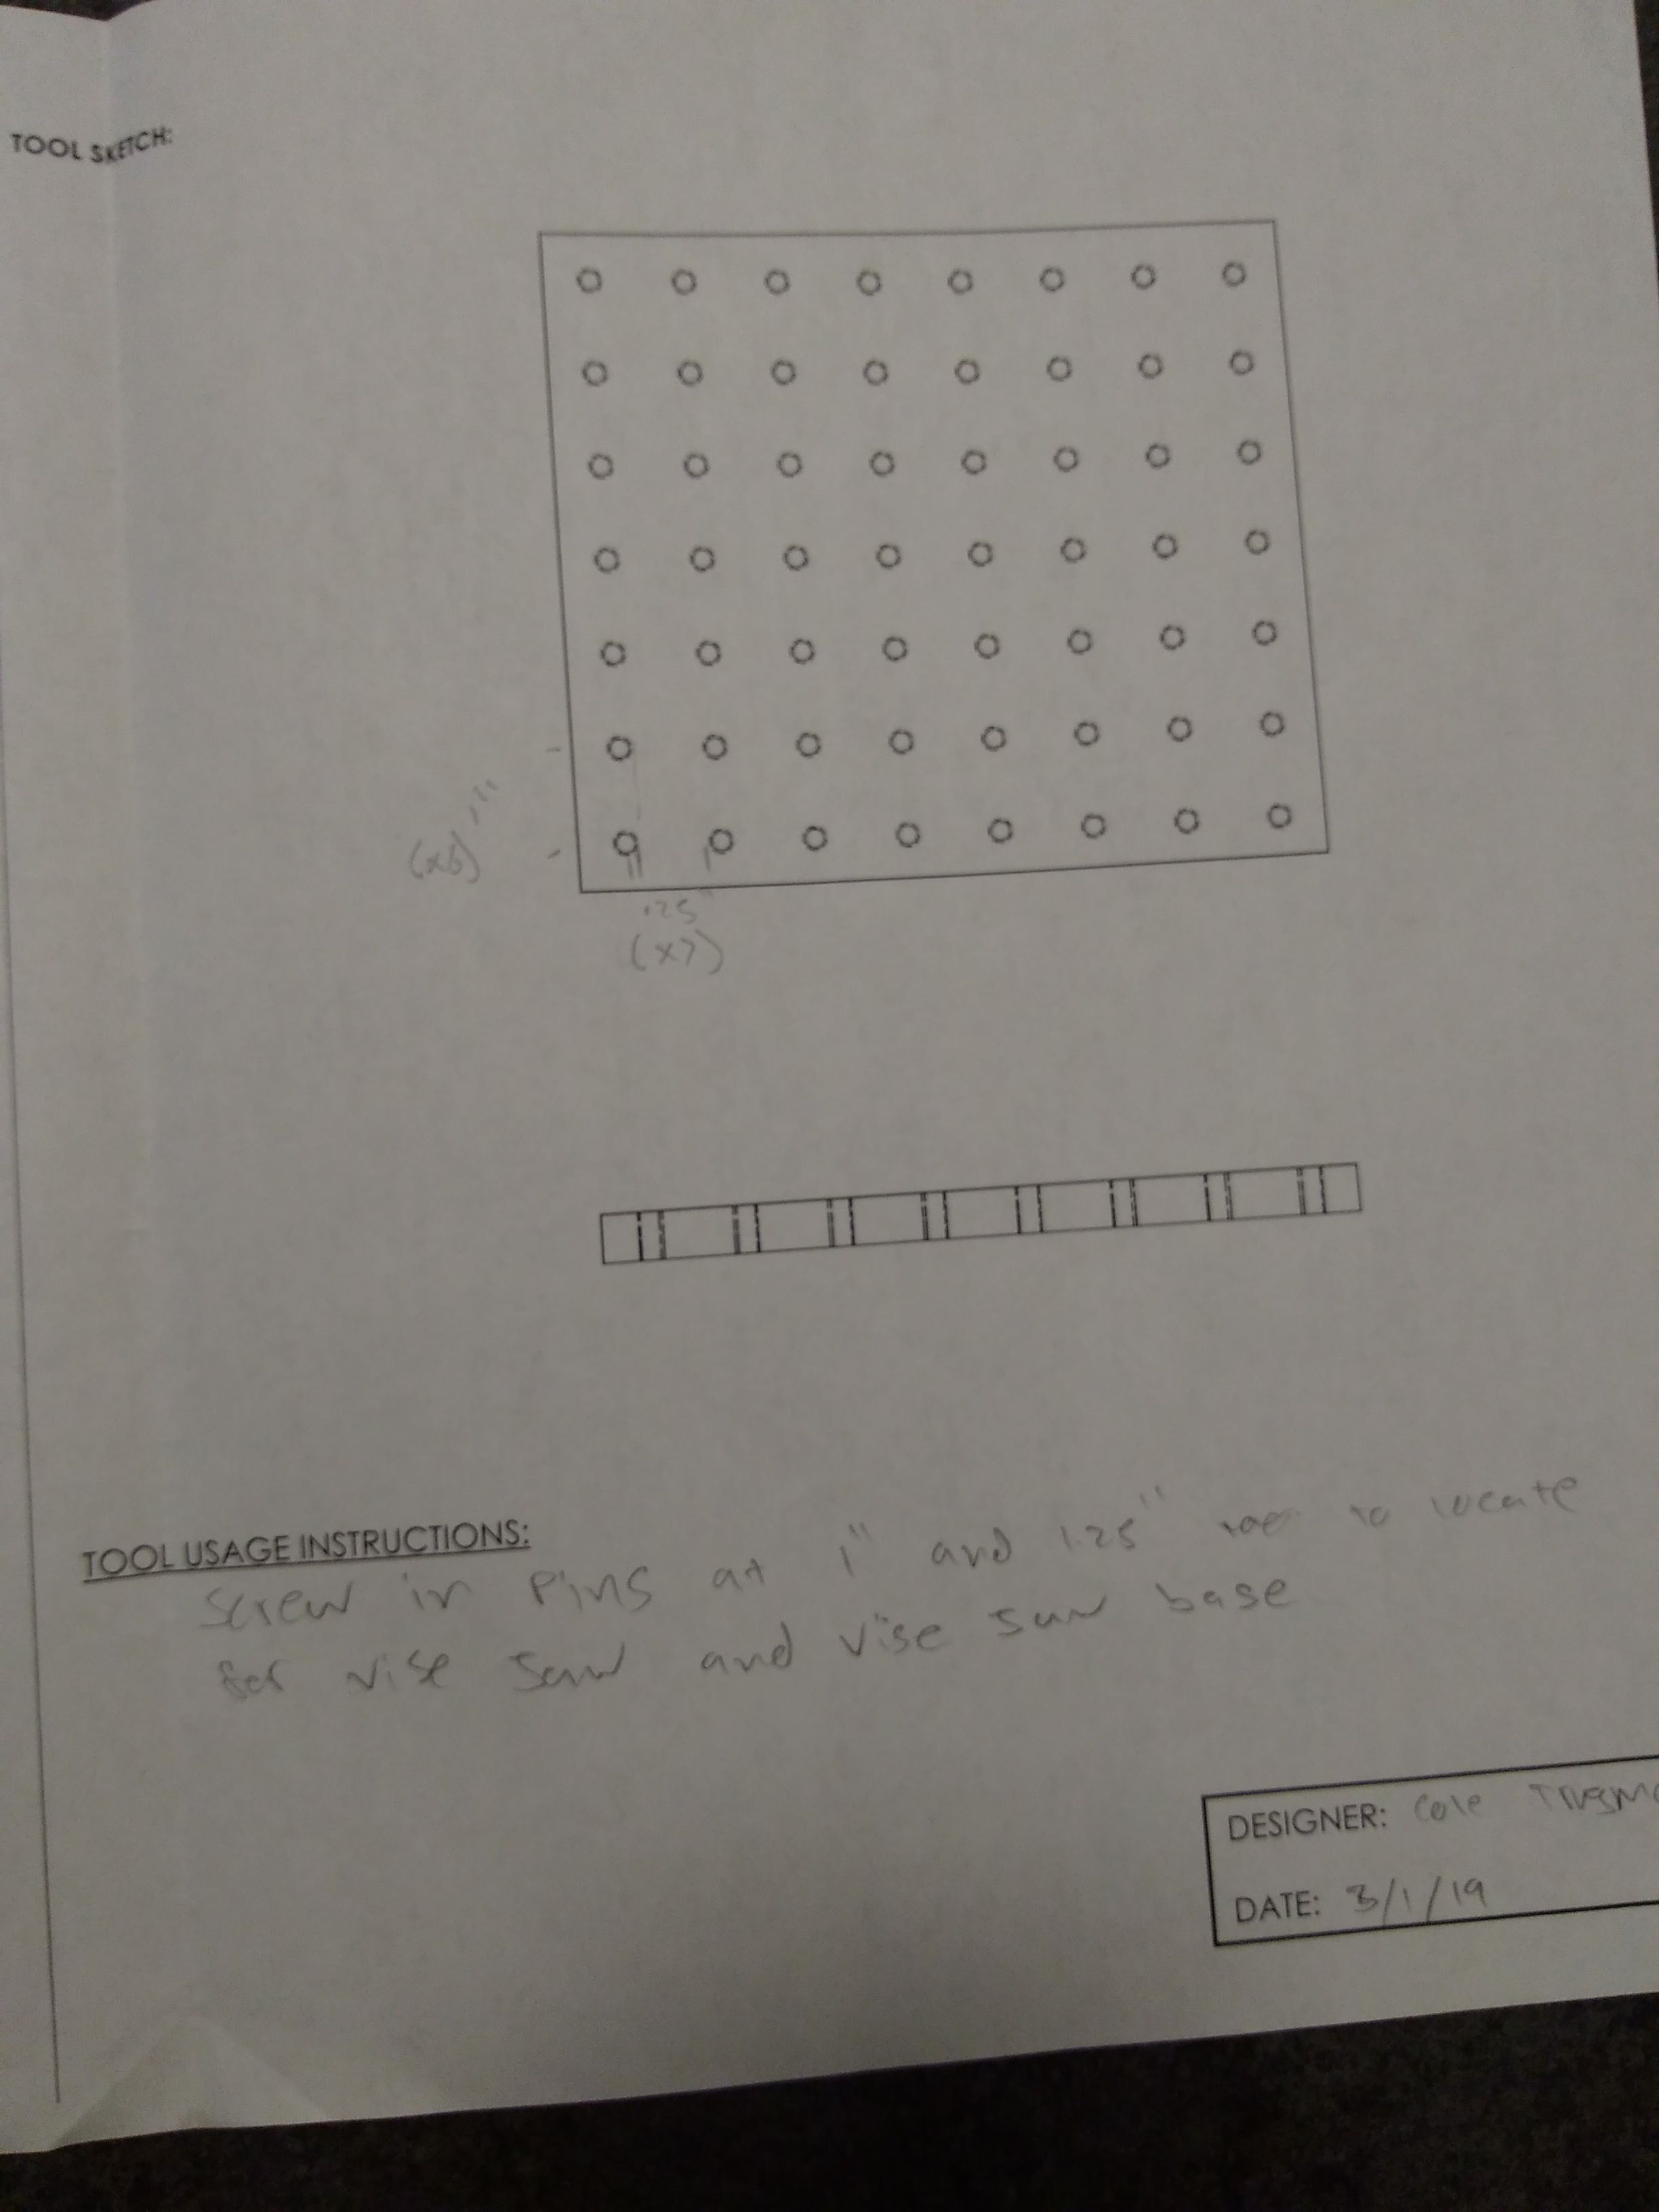 TOOL SKETCH:
(x6) 1"
.25"
(x7)
TOOL USAGE INSTRUCTIONS:
screw in Pins at 1" and 1.25" to locate
for vise Jaw and vise Jaw base
DESIGNER: Cole
DATE: 3/1/19